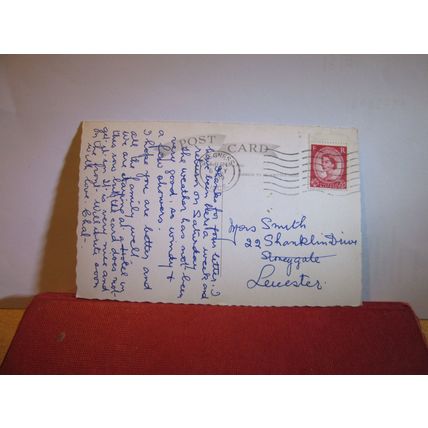 POST CARD
Thanks for your letter. I
have been here a week and
return on Saturday
the weather has not been
very good, as windy &
a few showers.
I hope you are better, and
all the family well.
We are staying at a hotel in
this one but the card does not
get it in. It is very nice and
on the front. Will write soon
will love
Mrs Smith
22 Shanklin Drive
Stoneygate
Leicester